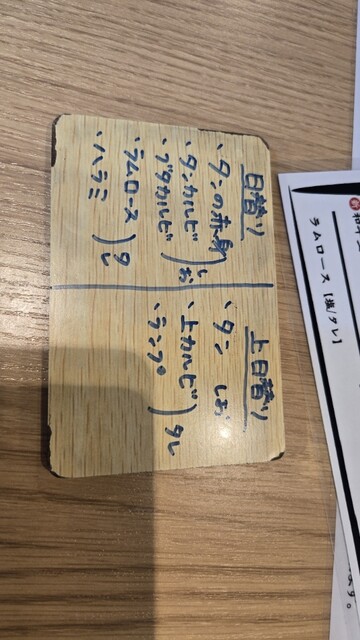 日替り
・タンの赤身
・タンカルビ
・ブタカルビ
しお
・ラムロース
・ハラミ
タレ
上日替り
・タン しお
・上カルビ
・ランプ
タレ
ラムロース【塩/タレ】